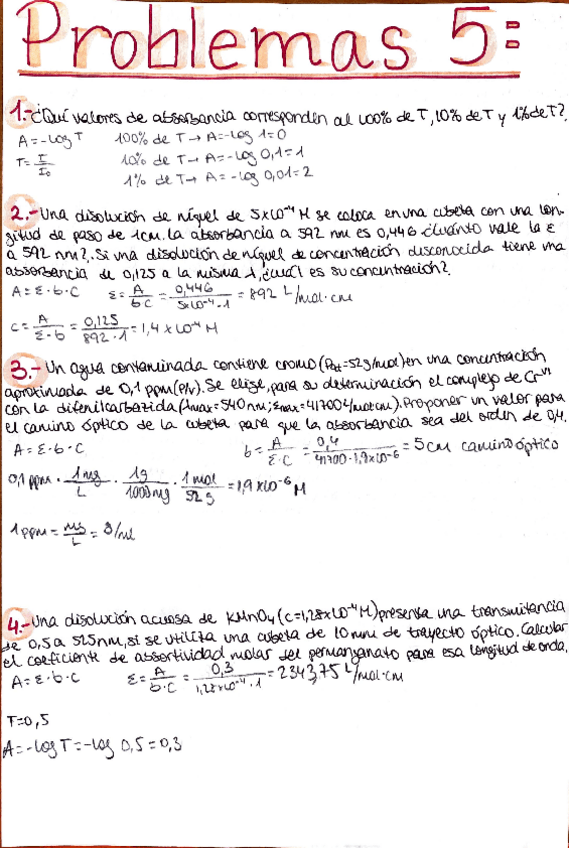 Problemas 5:
1.- ¿Qué valores de absorbancia corresponden al 100% de T, 10% de T y 1% de T?.
A = -log T 100% de T → A = -log 1 = 0
T = I/I₀ 10% de T → A = -log 0,1 = 1
1% de T → A = -log 0,01 = 2
2.- Una disolución de níquel de 5x10⁻⁴ M se coloca en una cubeta con una lon-
gitud de paso de 1cm. La absorbancia a 592 nm es 0,446 ¿cuánto vale la ε
a 592 nm?. Si una disolución de níquel de concentración desconocida tiene una
absorbancia de 0,125 a la misma λ, ¿cuál es su concentración?.
A = ε·b·c ε = A/b·c = 0,446/5x10⁻⁴·1 = 892 L/mol·cm
c = A/ε·b = 0,125/892·1 = 1,4 x 10⁻⁴ M
3.- Un agua contaminada contiene cromo (Pat=52g/mol) en una concentración
aproximada de 0,1 ppm (P/V). Se elige, para su determinación el complejo de Cr VI
con la difenilcarbazida (λmax=540nm; εmax=41700 L/molcm). Proponer un valor para
el camino óptico de la cubeta para que la absorbancia sea del orden de 0,4.
A = ε·b·c b = A/ε·c = 0,4/41700·1,9x10⁻⁶ = 5cm camino óptico
0,1 ppm · 1mg/L · 1g/1000mg · 1mol/52g = 1,9 x 10⁻⁶ M
1 ppm = mg/L = g/ml
4.- Una disolución acuosa de KMnO₄ (c=1,28x10⁻⁴M) presenta una transmitancia
de 0,5 a 525nm, si se utiliza una cubeta de 10mm de trayecto óptico. Calcular
el coeficiente de absortividad molar del permanganato para esa longitud de onda.
A = ε·b·c ε = A/b·c = 0,3/1,28x10⁻⁴·1 = 2343,75 L/mol·cm
T = 0,5
A = -log T = -log 0,5 = 0,3